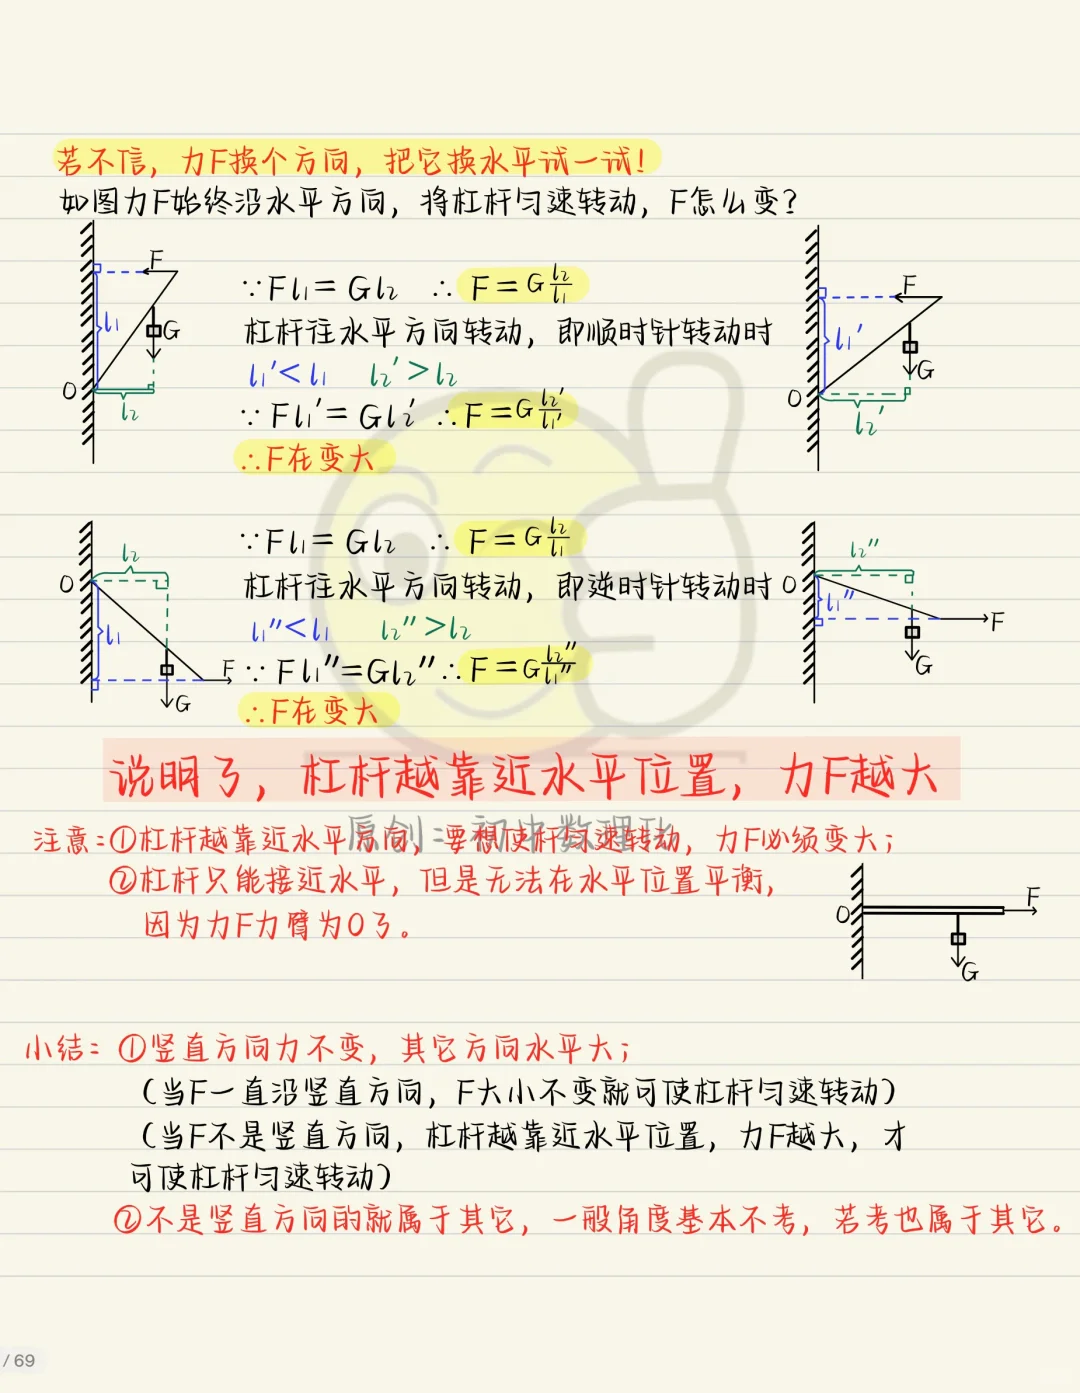 若不信，力F换个方向，把它换水平试一试！
如图力F始终沿水平方向，将杠杆匀速转动，F怎么变？
F
l₁
G
O
l₂
∵Fl₁=Gl₂ ∴F=G l₂/l₁
杠杆往水平方向转动，即顺时针转动时
l₁'<l₁ l₂'>l₂
∵Fl₁'=Gl₂' ∴F=G l₂'/l₁'
∴F在变大
F
l₁'
G
O
l₂'
l₂
O
l₁
F
G
∵Fl₁=Gl₂ ∴F=G l₂/l₁
杠杆往水平方向转动，即逆时针转动时
l₁''<l₁ l₂''>l₂
∵Fl₁''=Gl₂'' ∴F=G l₂''/l₁''
∴F在变大
l₂''
O
l₁''
F
G
说明了，杠杆越靠近水平位置，力F越大
原创：初中数理化
注意：①杠杆越靠近水平方向，要想使杆匀速转动，力F必须变大；
②杠杆只能接近水平，但是无法在水平位置平衡，
因为力F力臂为0了。
O
F
G
小结：①竖直方向力不变，其它方向水平大；
（当F一直沿竖直方向，F大小不变就可使杠杆匀速转动）
（当F不是竖直方向，杠杆越靠近水平位置，力F越大，才
可使杠杆匀速转动）
②不是竖直方向的就属于其它，一般角度基本不考，若考也属于其它。
/ 69